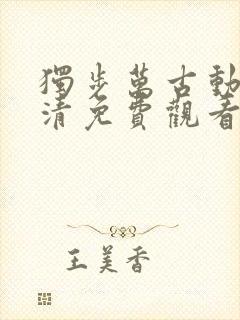 獨步萬古動
清免費觀看
王美香